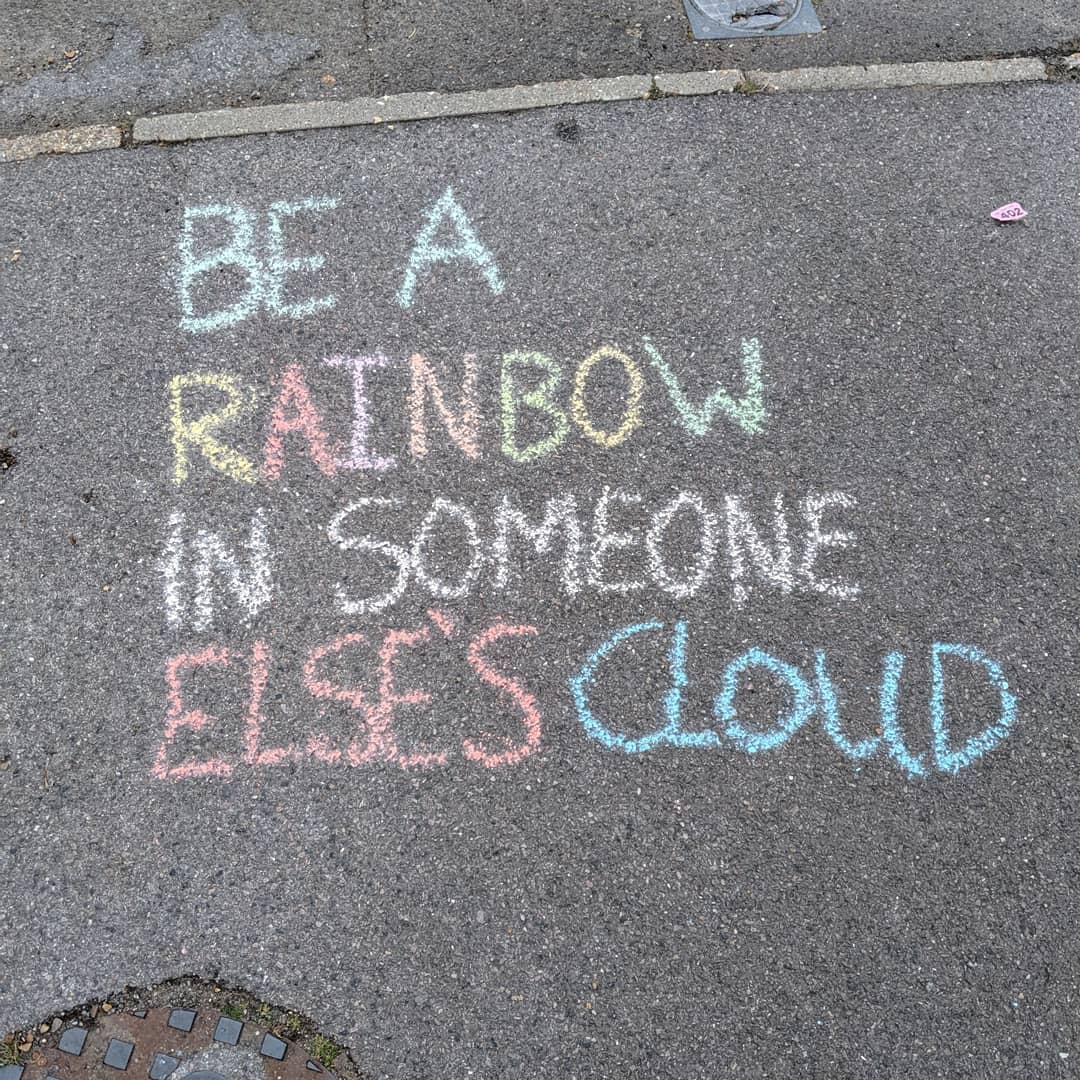 BE A
RAINBOW
IN SOMEONE
ELSE'S CLOUD
402